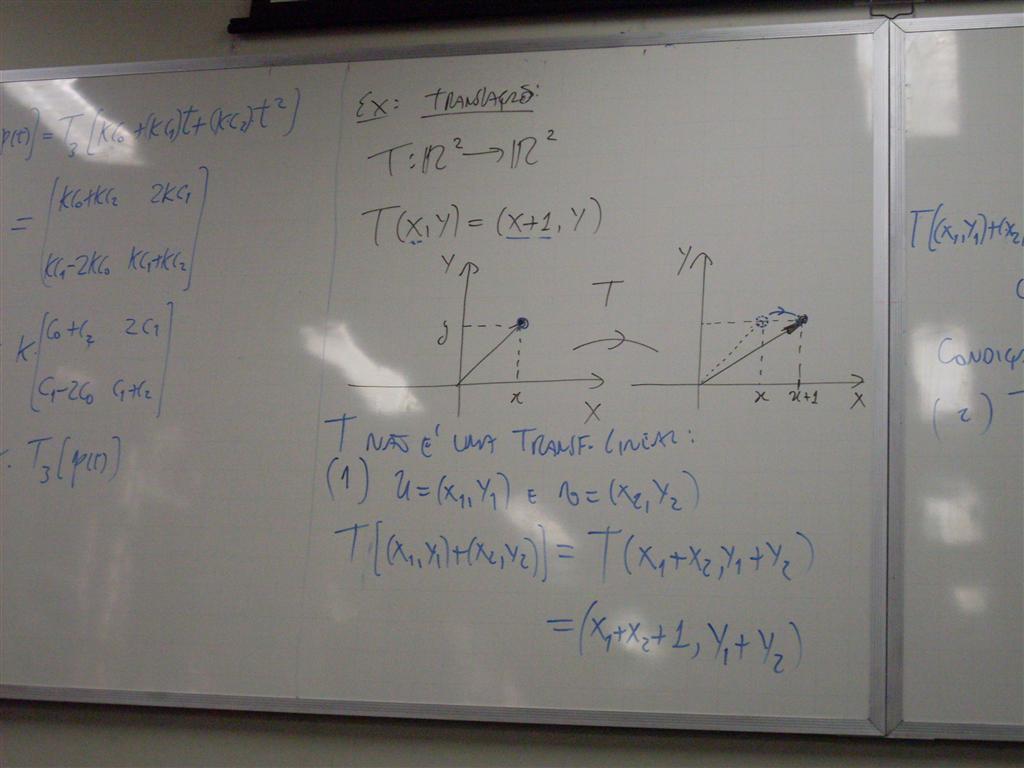 p(t)] = T₃[KC₀+(KC₁)t+(KC₂)t²]
= [KC₀+KC₂ 2KC₁
KC₁-2KC₀ KC₁+KC₂]
K. [C₀+C₂ 2C₁
C₁-2C₀ C₁+C₂]
. T₃[p(t)]
EX: TRANSLAÇÕES:
T: ℝ² → ℝ²
T(X,Y) = (X+1, Y)
Y
y
x
X
T
Y
x
x+1
X
T NÃO É UMA TRANSF. LINEAR:
(1) u=(X₁,Y₁) E v=(X₂,Y₂)
T[(X₁,Y₁)+(X₂,Y₂)] = T(X₁+X₂,Y₁+Y₂)
=(X₁+X₂+1, Y₁+Y₂)
T[(X₁,Y₁)+(X₂,
(2) T